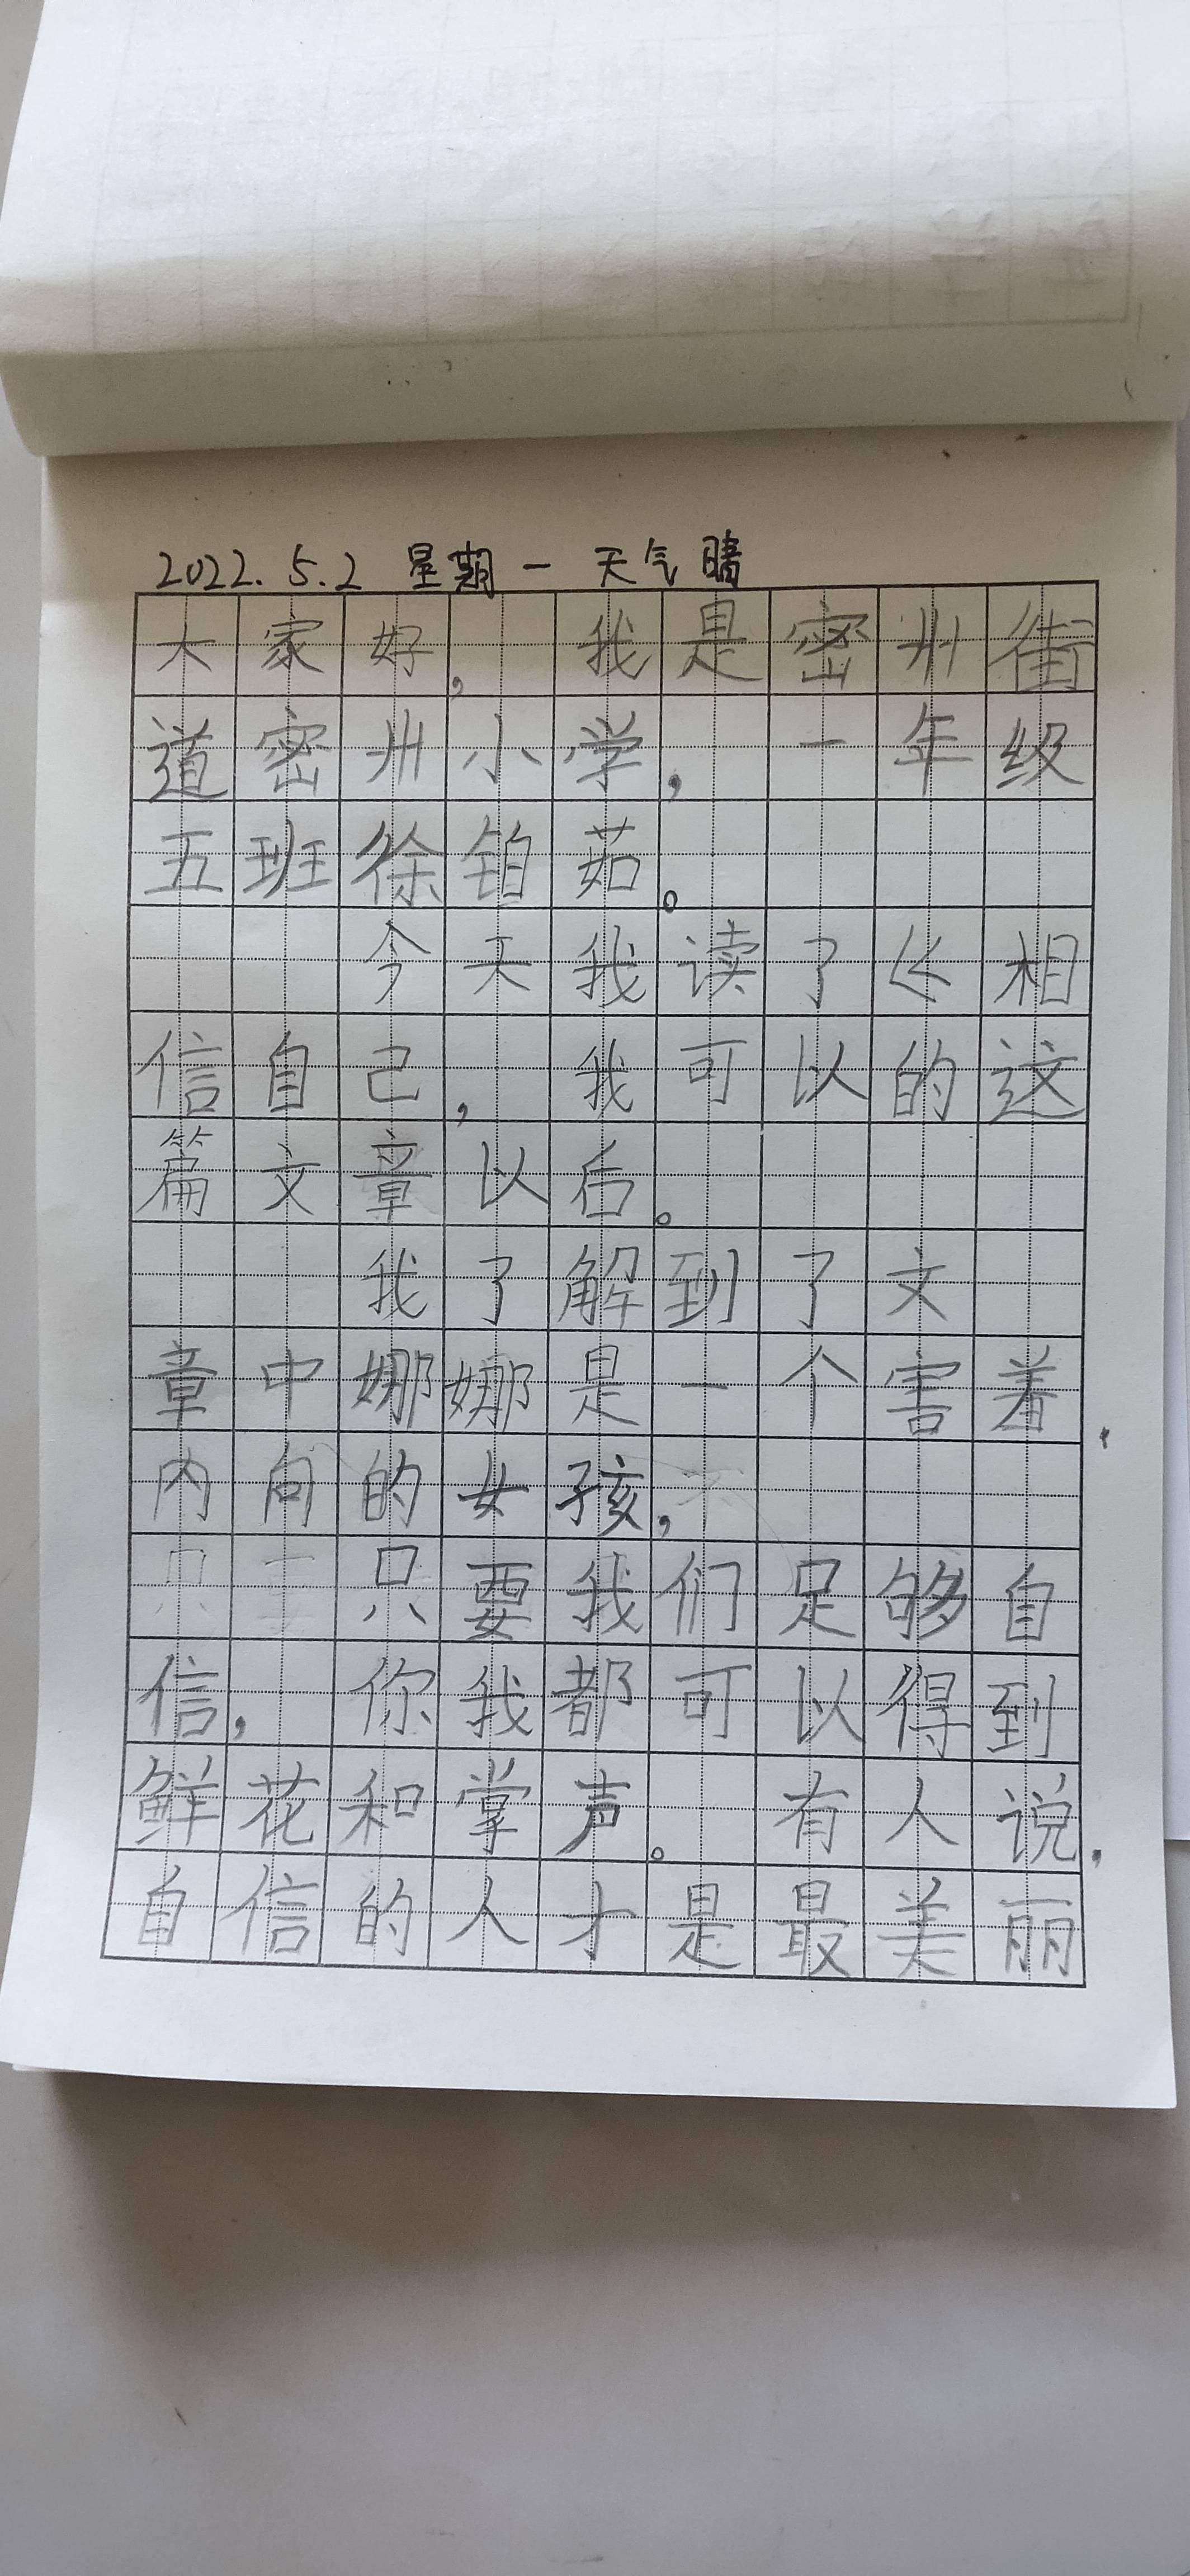 2022.5.2 星期一 天气晴
大家好，我是密州街
道密州小学，一年级
五班徐铂茹。
今天我读了《相
信自己，我可以的这
篇文章以后。
我了解到了文
章中娜娜是一个害着
内向的女孩，
只要我们足够自
信，你我都可以得到
鲜花和掌声。有人说，
自信的人才是最美丽